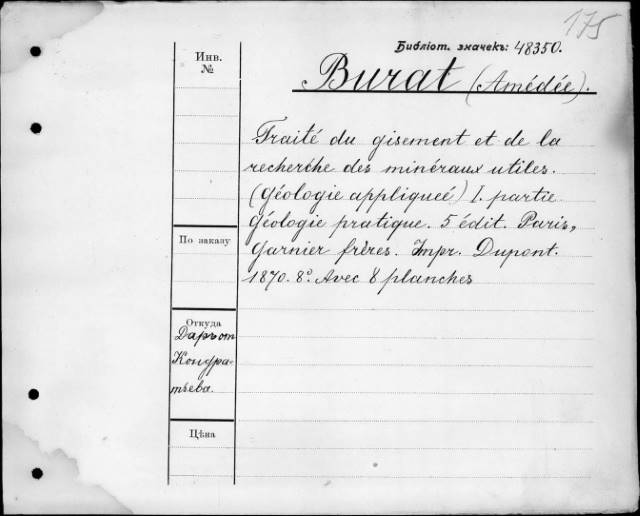 175
Библіот. значекъ: 48350.
Инв.
№
Burat (Amédée).
Traité du gisement et de la
recherche des minéraux utiles.
(Géologie appliqueé) I. partie
Géologie pratique. 5 édit. Paris,
Garnier frères. Impr. Dupont.
1870. 8º. Avec 8 planches
По заказу
Откуда
Даръ от
Кондра-
тьева.
Цѣна